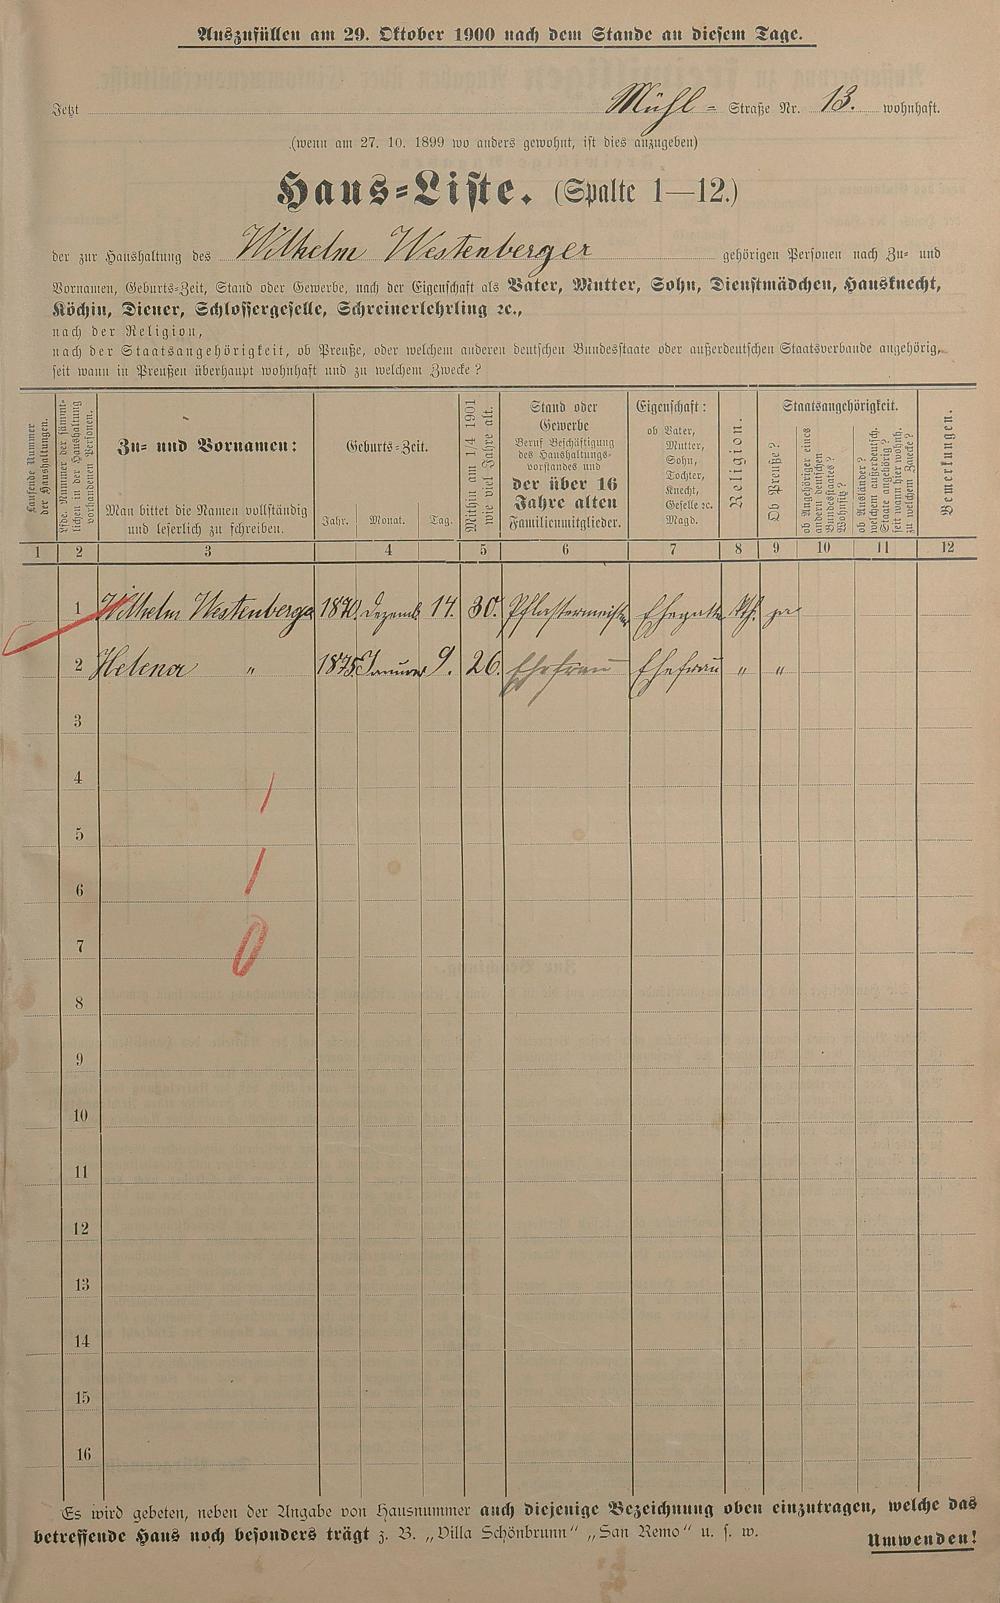 Auszufüllen am 29. Oktober 1900 nach dem Stande an diesem Tage.
Jetzt Mühl = Straße Nr. 13. wohnhaft.
(wenn am 27. 10. 1899 wo anders gewohnt, ist dies anzugeben)
Haus=Liste. (Spalte 1—12.)
der zur Haushaltung des Wilhelm Westenberger gehörigen Personen nach Zu= und
Vornamen, Geburts=Zeit, Stand oder Gewerbe, nach der Eigenschaft als Vater, Mutter, Sohn, Dienstmädchen, Hausknecht,
Köchin, Diener, Schlossergeselle, Schreinerlehrling ꝛc.,
nach der Religion,
nach der Staatsangehörigkeit, ob Preuße, oder welchem anderen deutschen Bundesstaate oder außerdeutschen Staatsverbande angehörig,
seit wann in Preußen überhaupt wohnhaft und zu welchem Zwecke?
Laufende Nummer
der Haushaltungen.
Lfde. Nummer der sämmt-
lichen in der Haushaltung
vorhandenen Personen.
Zu= und Vornamen:
Man bittet die Namen vollständig
und leserlich zu schreiben.
Geburts=Zeit.
Jahr. Monat. Tag.
Mithin am 1/4 1901
wie viel Jahre alt.
Stand oder
Gewerbe
Beruf Beschäftigung
des Haushaltungs-
vorstandes und
der über 16
Jahre alten
Familienmitglieder.
Eigenschaft:
ob Vater,
Mutter,
Sohn,
Tochter,
Knecht,
Geselle ꝛc.
Magd.
Religion.
Staatsangehörigkeit.
Ob Preuße?
ob Angehöriger eines
andern deutschen
Bundesstaates?
Wohnsitz?
ob Ausländer?
welchem außerdeutsch.
Staate angehörig?
seit wann hier wohnh.
zu welchem Zwecke?
Bemerkungen.
1 2 3 4 5 6 7 8 9 10 11 12
1 Wilhelm Westenberger 1870. Dezemb. 14. 30. Pflastermeister Ehegatte Kth. ja
2 Helena " 1875. Januar 9. 26. Ehefrau Ehefrau " "
3
4
5
6
7
8
9
10
11
12
13
14
15
16
1
1
0
Es wird gebeten, neben der Angabe von Hausnummer auch diejenige Bezeichnung oben einzutragen, welche das
betreffende Haus noch besonders trägt z. B. „Villa Schönbrunn" „San Remo" u. s. w.
Umwenden!